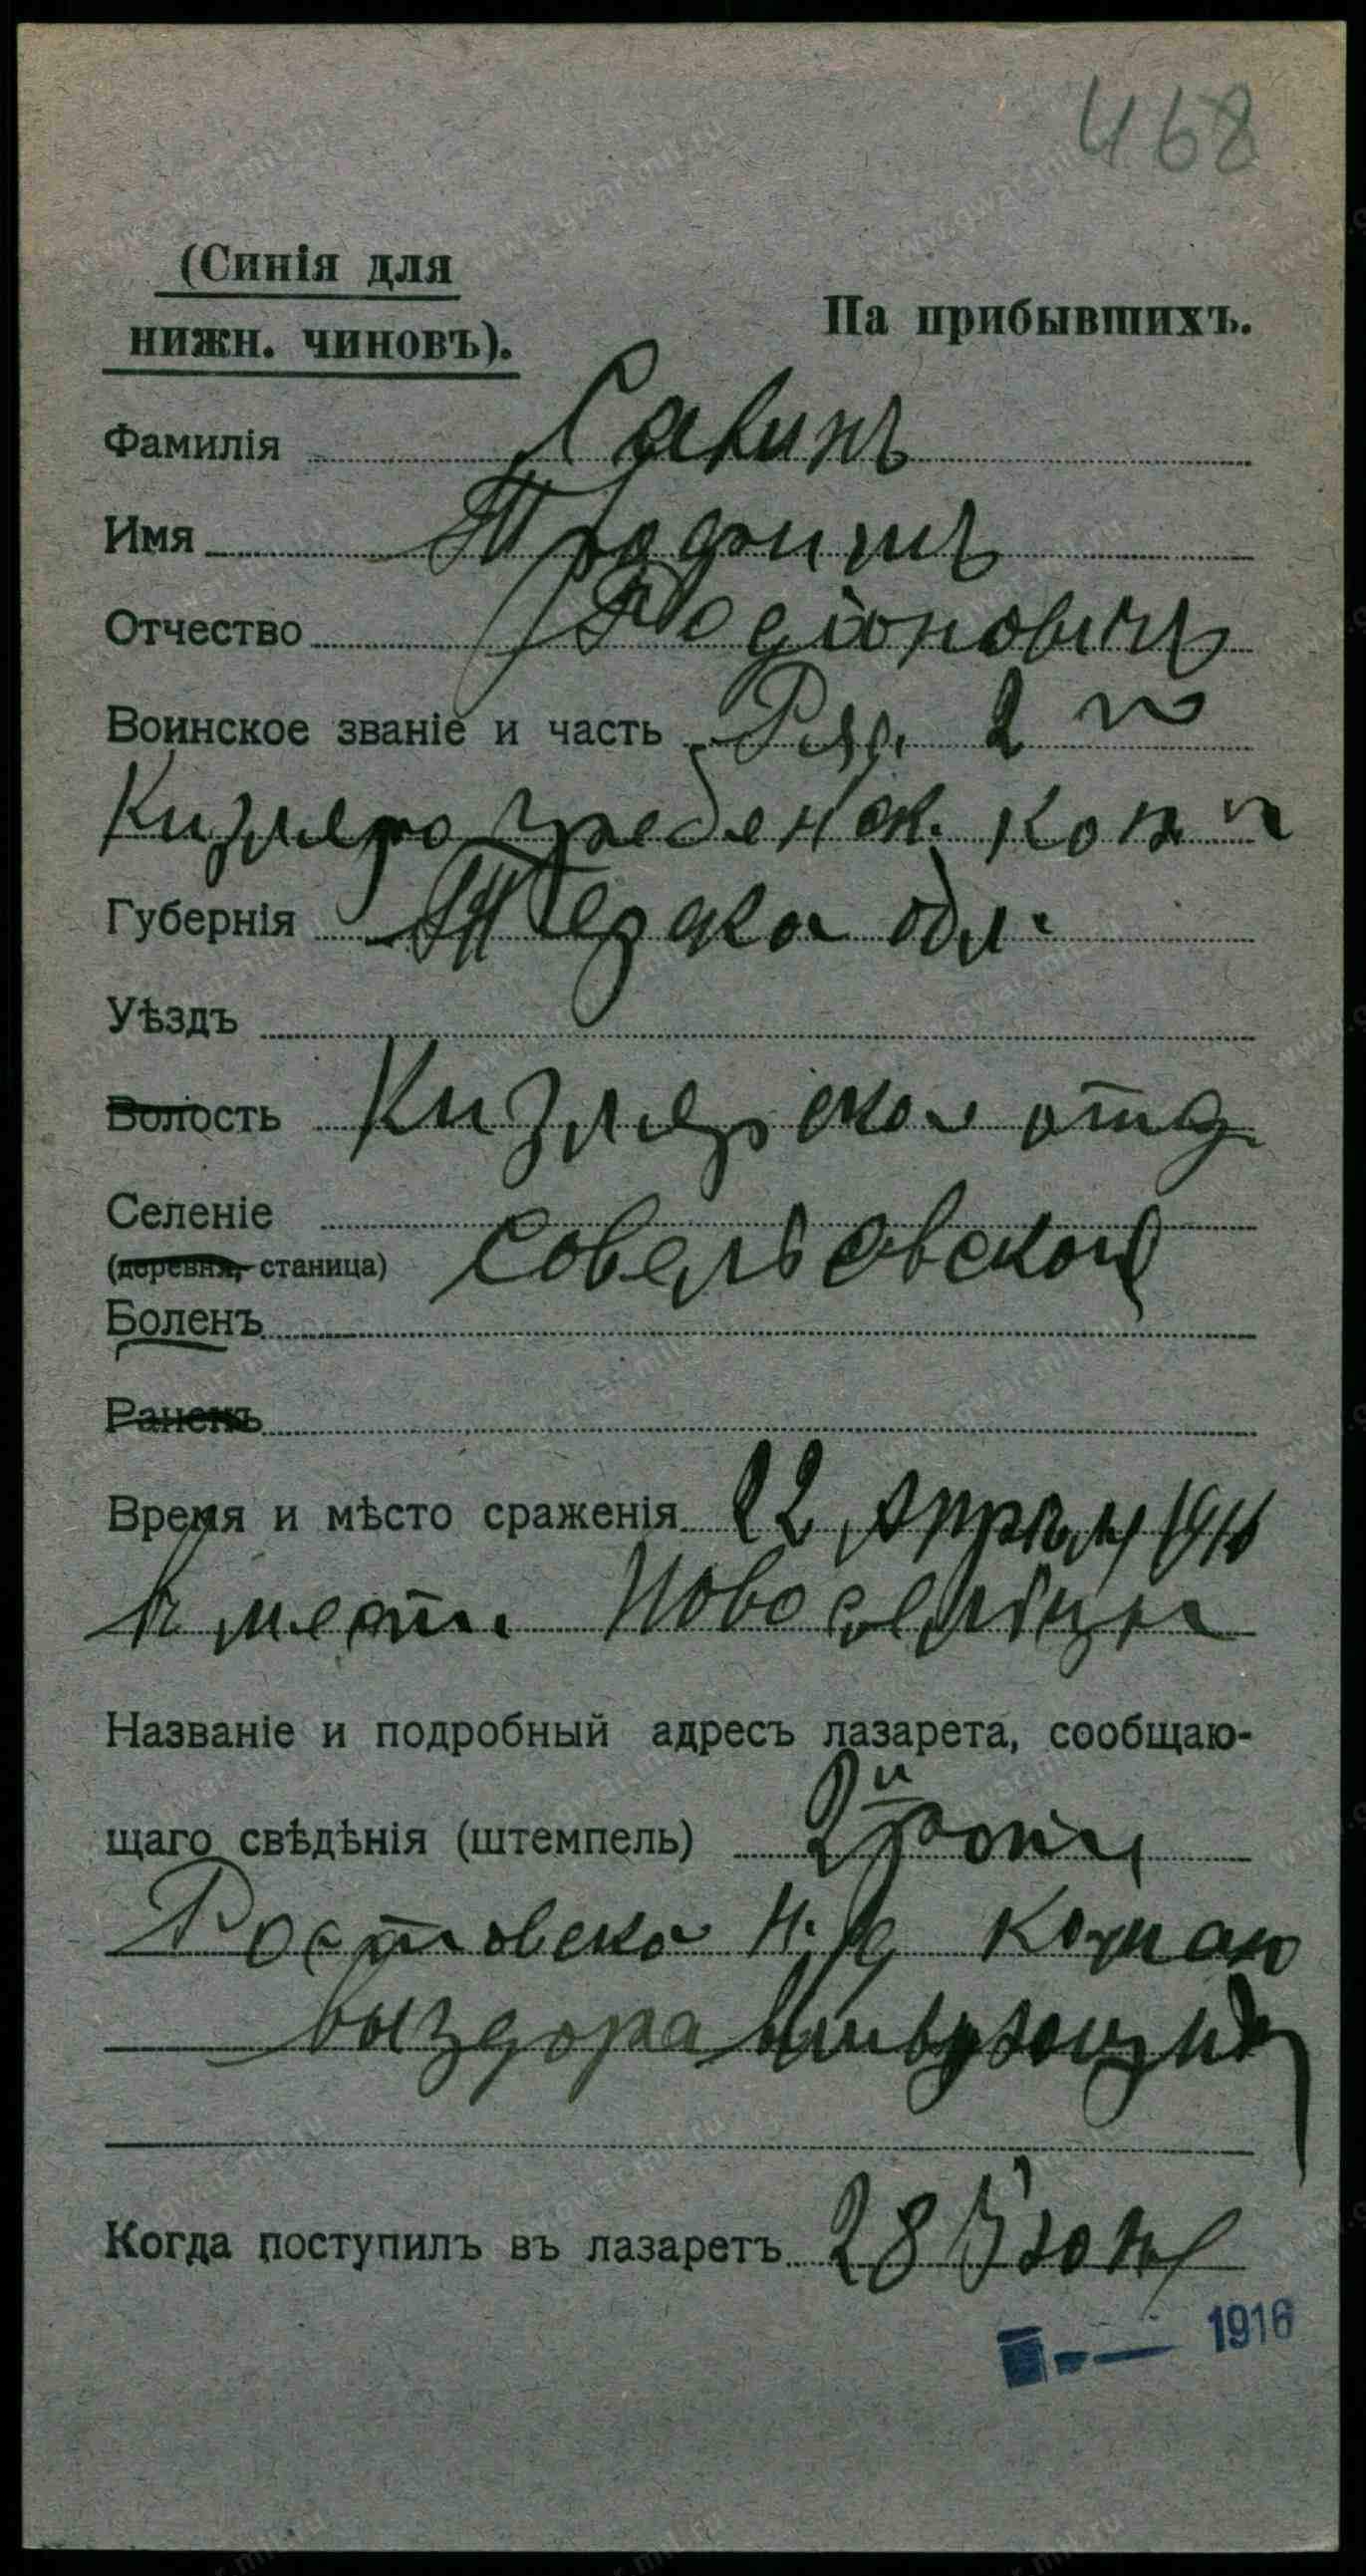 468
(Синія для
нижн. чиновъ).
На прибывшихъ.
Фамилія Савинъ
Имя Трофимъ
Отчество Родіоновичъ
Воинское званіе и часть Ряд. 2 го
Кизляро Гребенск. кон п
Губернія Терска обл.
Уѣздъ
Волость Кизлярскаго отд
Селеніе
(деревня, станица) Совельевской
Боленъ
Раненъ
Время и мѣсто сраженія 22 Апрѣля 1916
в мест. Новоселица
Названіе и подробный адресъ лазарета, сообщаю-
щаго свѣдѣнія (штемпель) 2й роты
Ростовска н. Д коман
выздоравливующих
Когда поступилъ въ лазаретъ 28 Іюня
1916